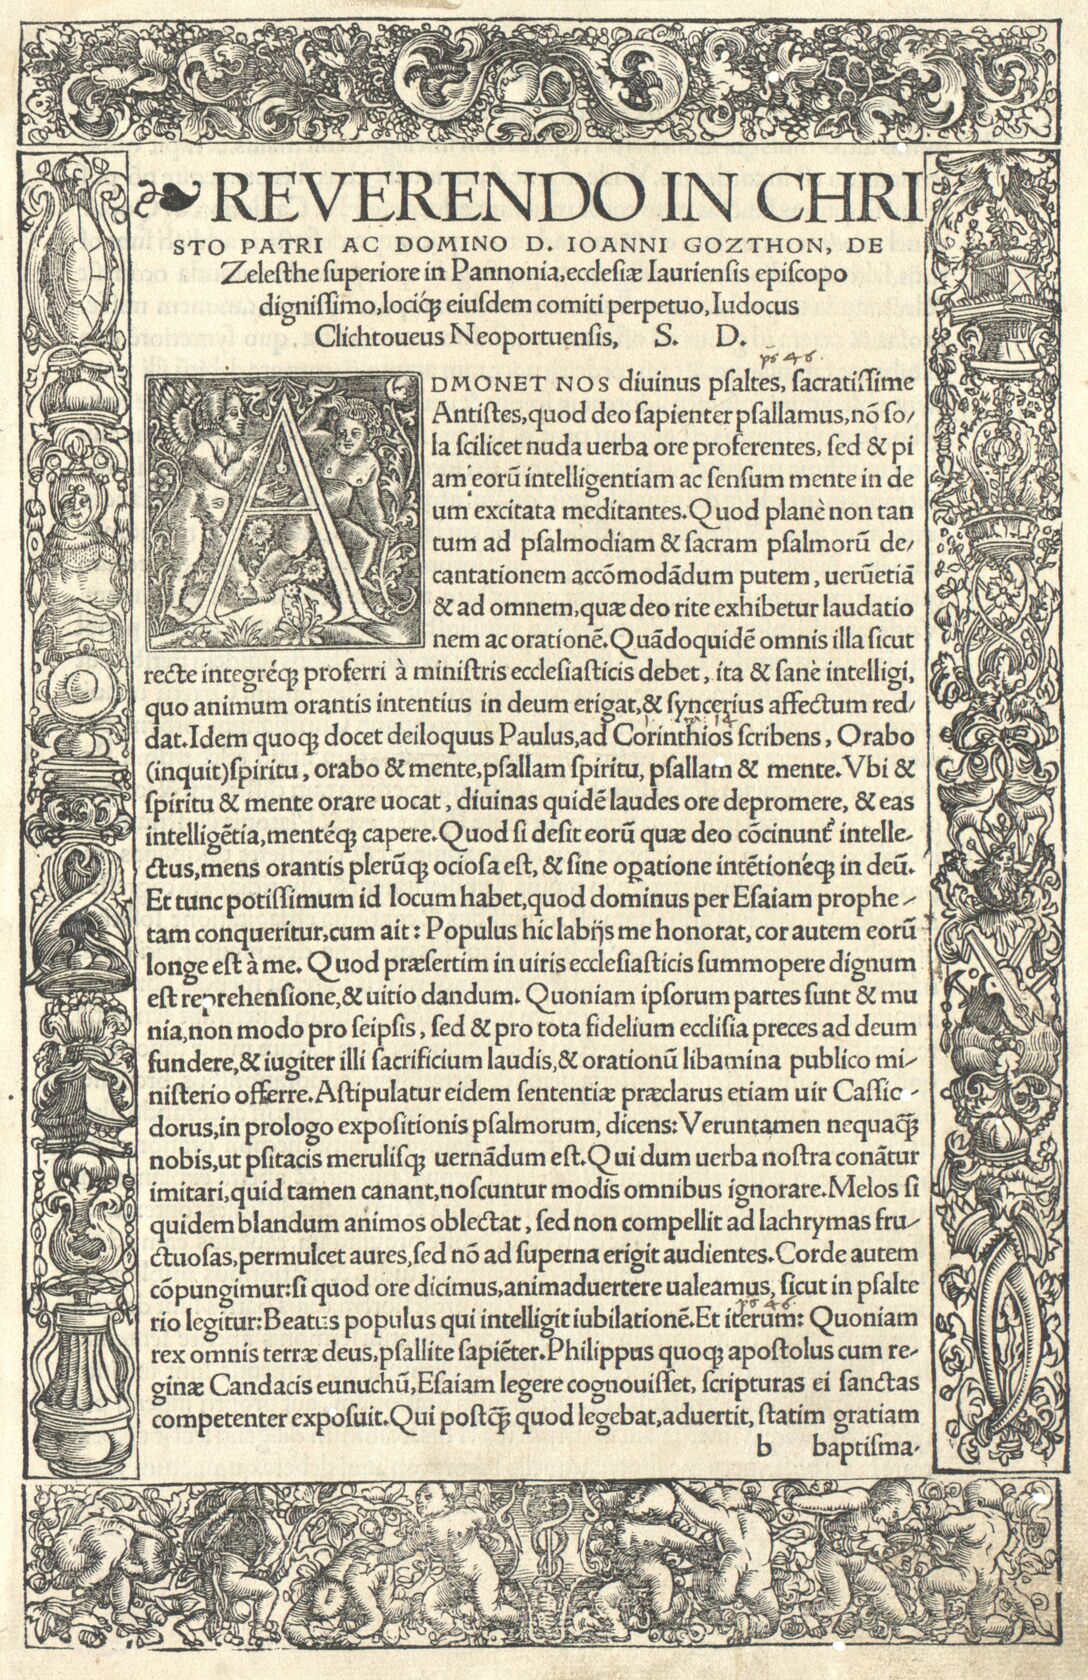 REVERENDO IN CHRI
STO PATRI AC DOMINO D. IOANNI GOZTHON, DE
Zelesthe superiore in Pannonia,ecclesiæ Iauriensis episcopo
dignissimo,lociq́ꝫ eiusdem comiti perpetuo,Iudocus
Clichtoueus Neoportuensis, S. D.
ps 46.
ADMONET NOS diuinus psaltes, sacratissime
Antistes,quod deo sapienter psallamus,nō so/
la scilicet nuda uerba ore proferentes, sed & pi
am eorū intelligentiam ac sensum mente in de
um excitata meditantes.Quod planè non tan
tum ad psalmodiam & sacram psalmorū de/
cantationem accōmodādum putem, uerūetiā
& ad omnem,quæ deo rite exhibetur laudatio
nem ac orationē.Quādoquidē omnis illa sicut
recte integréq́ꝫ proferri à ministris ecclesiasticis debet, ita & sanè intelligi,
quo animum orantis intentius in deum erigat,& syncerius affectum red/
dat.Idem quoqꝫ docet deiloquus Paulus,ad Corinthios scribens, Orabo
(inquit)spiritu, orabo & mente,psallam spiritu, psallam & mente.Vbi &
spiritu & mente orare uocat, diuinas quidē laudes ore depromere, & eas
intelligētia,mentéq́ꝫ capere.Quod si desit eorū quæ deo cōcinunt intelle-
ctus,mens orantis plerūqꝫ ociosa est, & sine oꝑatione intētionéq́ꝫ in deū.
Et tunc potissimum id locum habet,quod dominus per Esaiam prophe-
tam conqueritur,cum ait: Populus hic labijs me honorat, cor autem eorū
longe est à me. Quod præsertim in uiris ecclesiasticis summopere dignum
est reprehensione,& uitio dandum. Quoniam ipsorum partes sunt & mu
nia,non modo pro seipsis, sed & pro tota fidelium ecclisia preces ad deum
fundere,& iugiter illi sacrificium laudis,& orationū libamina publico mi-
nisterio offerre.Astipulatur eidem sententiæ præclarus etiam uir Cassio-
dorus,in prologo expositionis psalmorum, dicens: Veruntamen nequaꝗ̃
nobis,ut psitacis merulisqꝫ uernādum est.Qui dum uerba nostra conātur
imitari,quid tamen canant,noscuntur modis omnibus ignorare.Melos si
quidem blandum animos oblectat, sed non compellit ad lachrymas fru-
ctuosas,permulcet aures,sed nō ad superna erigit audientes.Corde autem
cōpungimur:si quod ore dicimus,animaduertere ualeamus, sicut in psalte
ps 46.
rio legitur:Beatus populus qui intelligit iubilationē.Et iterum: Quoniam
rex omnis terræ deus,psallite sapiēter.Philippus quoqꝫ apostolus cum re-
ginæ Candacis eunuchū,Esaiam legere cognouisset, scripturas ei sanctas
competenter exposuit.Qui postꝗ̃ quod legebat,aduertit, statim gratiam
b baptisma-